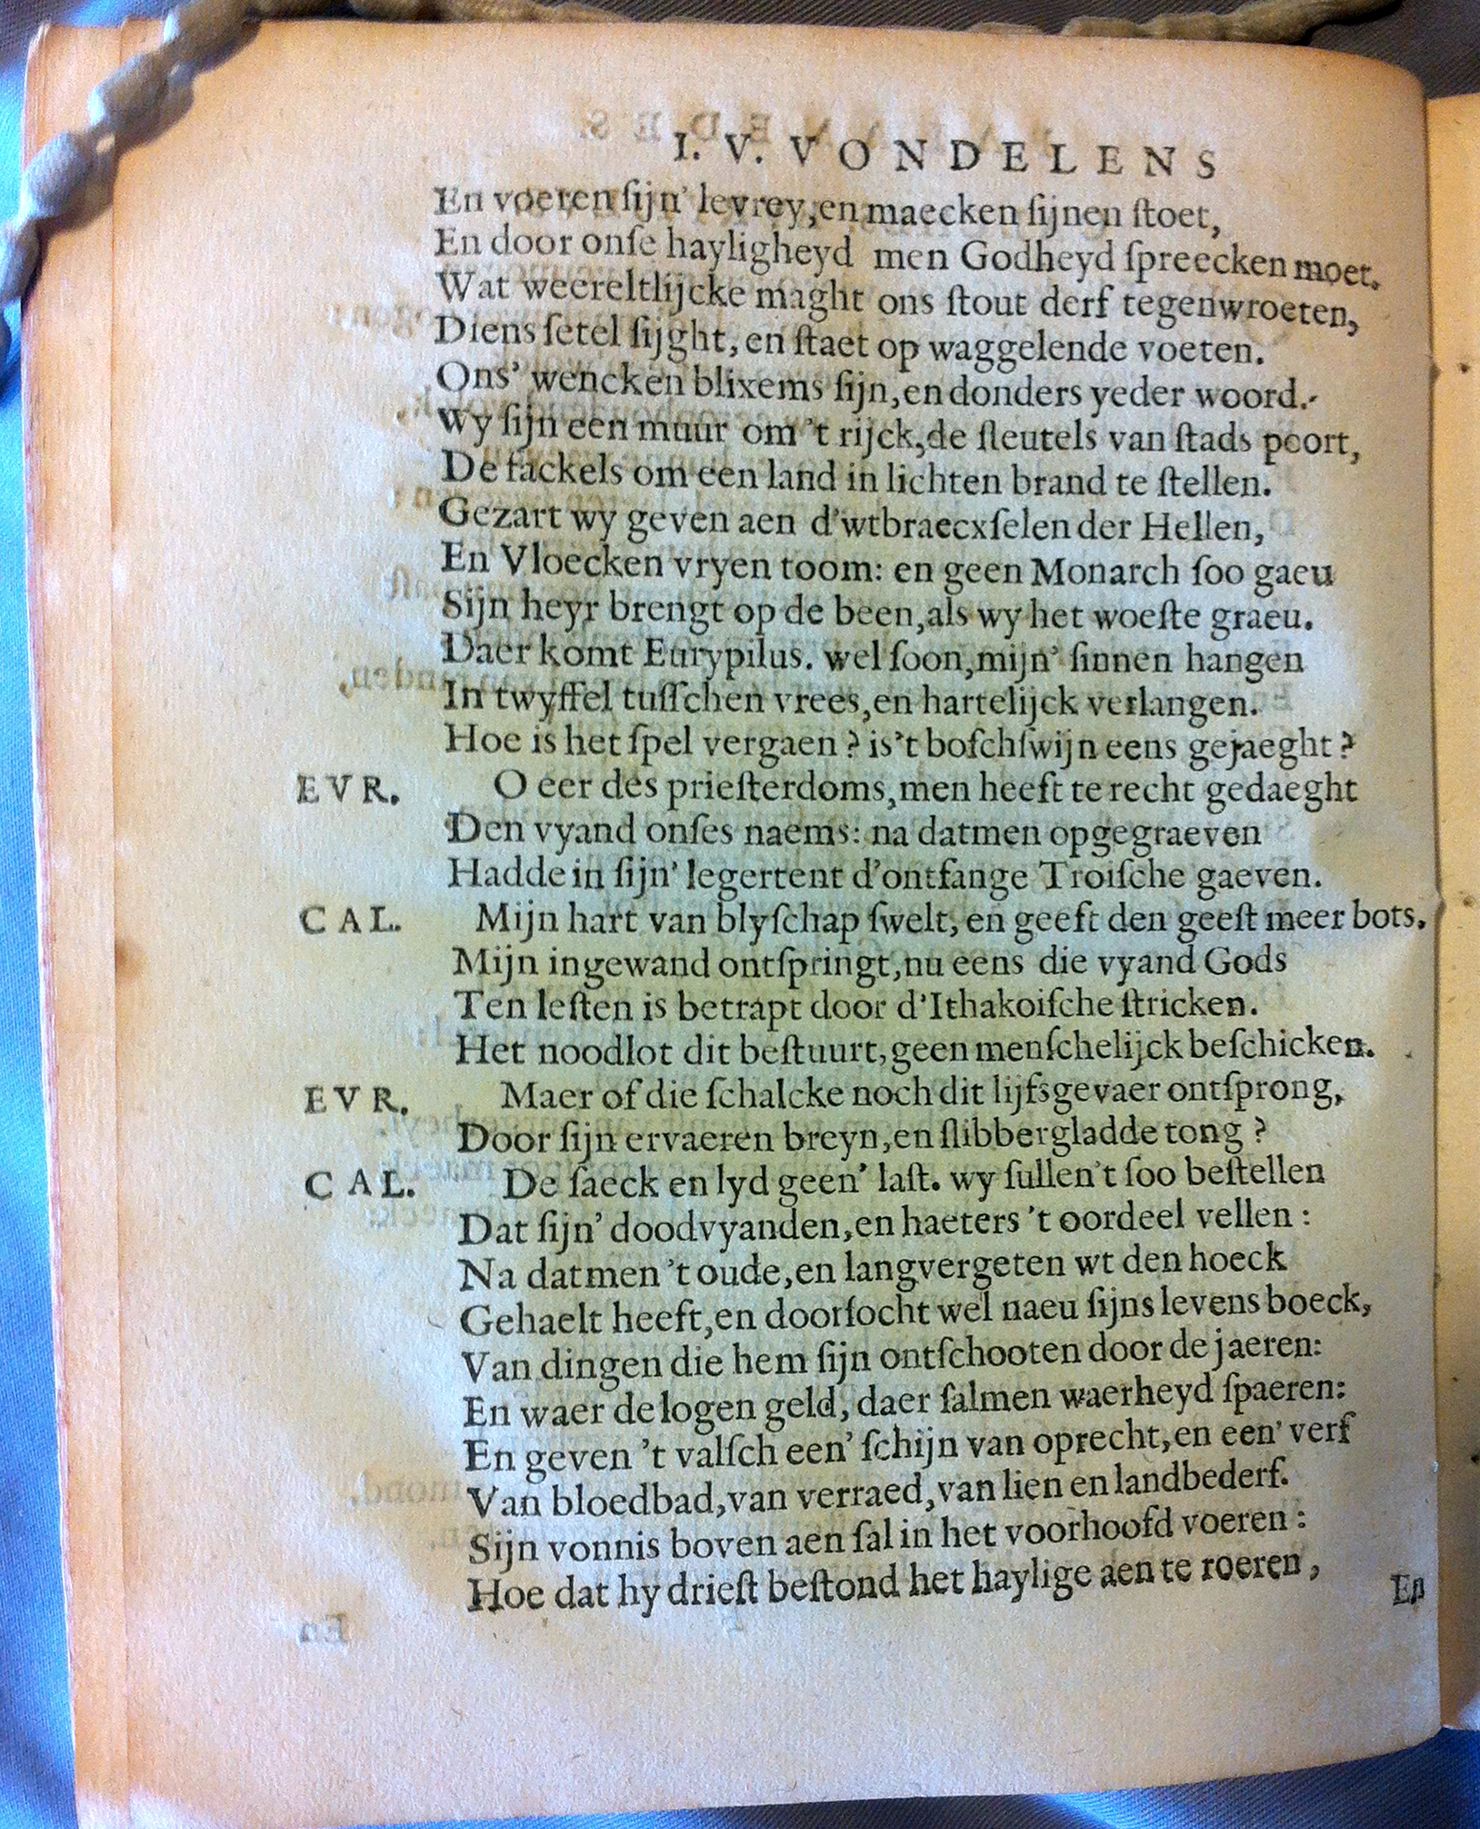 I. V. VONDELENS
En voeren ſijn' levrey,en maecken ſijnen ſtoet,
En door onſe hayligheyd men Godheyd ſpreecken moet.
Wat weereltlijcke maght ons ſtout derf tegenwroeten,
Diens ſetel ſijght, en ſtaet op waggelende voeten.
Ons' wencken blixems ſijn,en donders yeder woord.
Wy ſijn een muur om 't rijck,de ſleutels van ſtads poort,
De fackels om een land in lichten brand te ſtellen.
Gezart wy geven aen d'wtbraecxſelen der Hellen,
En Vloecken vryen toom: en geen Monarch ſoo gaeu
Sijn heyr brengt op de been,als wy het woeſte graeu.
Daer komt Eurypilus. wel ſoon,mijn' ſinnen hangen
In twyffel tuſſchen vrees,en hartelijck verlangen.
Hoe is het ſpel vergaen ? is't boſchſwijn eens gejaeght ?
EVR. O eer des prieſterdoms,men heeft te recht gedaeght
Den vyand onſes naems: na datmen opgegraeven
Hadde in ſijn' legertent d'ontfange Troiſche gaeven.
CAL. Mijn hart van blyſchap ſwelt, en geeft den geeſt meer bots.
Mijn ingewand ontſpringt,nu eens die vyand Gods
Ten leſten is betrapt door d'Ithakoiſche ſtricken.
Het noodlot dit beſtuurt,geen menſchelijck beſchicken.
EVR. Maer of die ſchalcke noch dit lijfsgevaer ontſprong,
Door ſijn ervaeren breyn,en ſlibbergladde tong ?
CAL. De ſaeck en lyd geen' laſt. wy ſullen't ſoo beſtellen
Dat ſijn' doodvyanden,en haeters 't oordeel vellen :
Na datmen 't oude,en langvergeten wt den hoeck
Gehaelt heeft,en doorſocht wel naeu ſijns levens boeck,
Van dingen die hem ſijn ontſchooten door de jaeren:
En waer de logen geld, daer ſalmen waerheyd ſpaeren:
En geven 't valſch een' ſchijn van oprecht,en een' verf
Van bloedbad,van verraed,van lien en landbederf.
Sijn vonnis boven aen ſal in het voorhoofd voeren :
Hoe dat hy drieſt beſtond het haylige aen te roeren ,
En